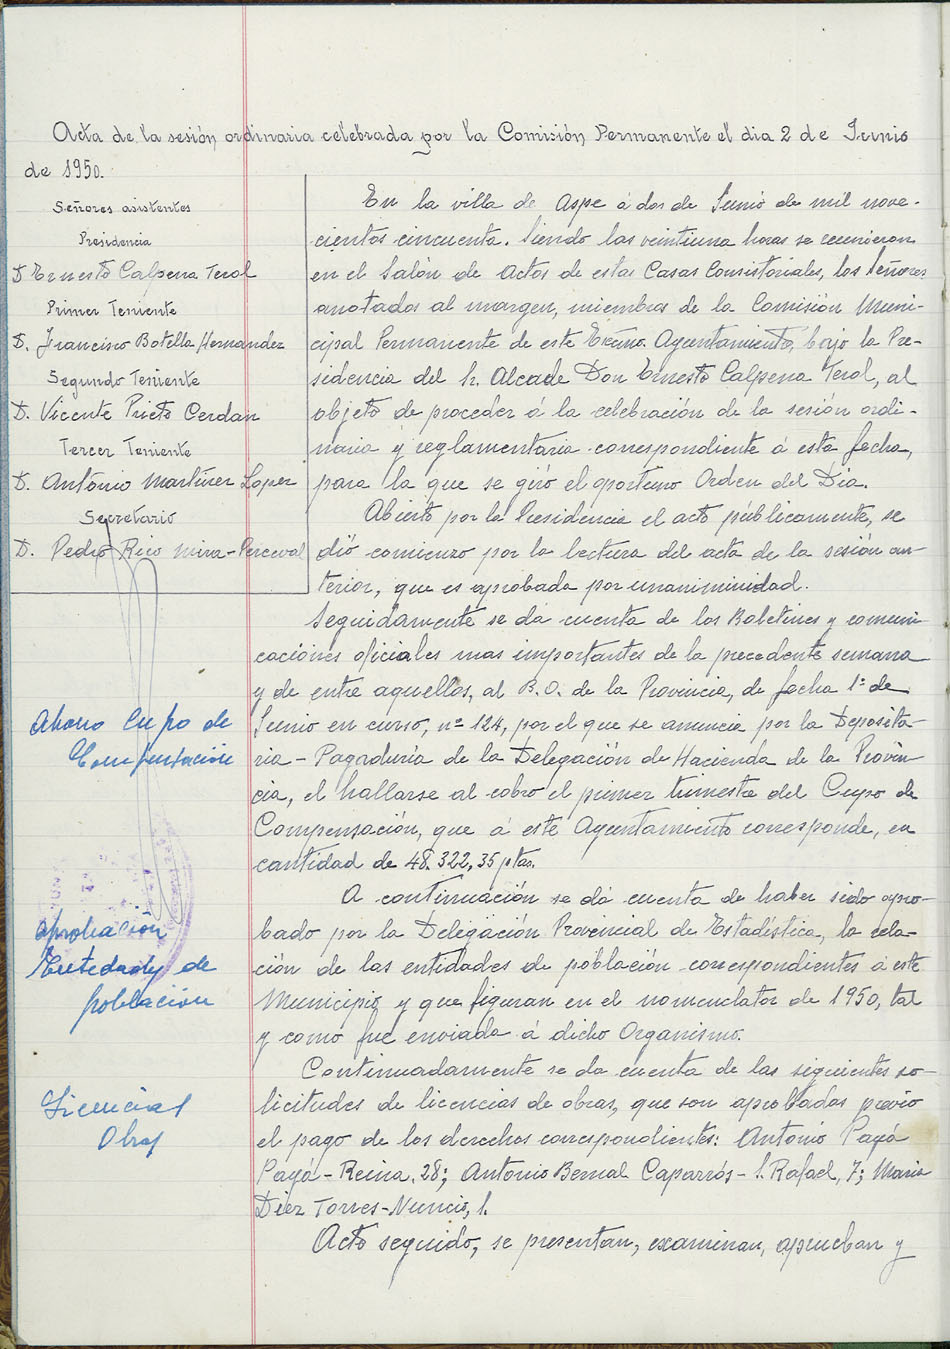 Acta de la sesión ordinaria celebrada por la Comisión Permanente el dia 2 de Junio
de 1950.
Señores asistentes
Presidencia
D. Ernesto Calpena Terol
Primer Teniente
D. Francisco Botella Hernandez
Segundo Teniente
D. Vicente Prieto Cerdan
Tercer Teniente
D. Antonio Martinez Lopez
Secretario
D. Pedro Rico Mira-Perceval
En la villa de Aspe á dos de Junio de mil nove-
cientos cincuenta. Siendo las veintiuna horas se reunieron
en el Salón de Actos de estas Casas Consistoriales, los Señores
anotados al margen, miembros de la Comisión Muni-
cipal Permanente de este Excmo. Ayuntamiento, bajo la Pre-
sidencia del Sr. Alcade Don Ernesto Calpena Terol, al
objeto de proceder á la celebración de la sesión ordi-
naria y reglamentaria correspondiente á esta fecha,
para la que se giró el oportuno Orden del Dia.
Abierto por la Presidencia el acto públicamente, se
dió comienzo por la lectura del acta de la sesión an-
terior, que es aprobada por unaniminidad.
Seguidamente se dá cuenta de los Boletines y comuni-
caciónes oficiales mas importantes de la precedente semana
y de entre aquellos, al B.O. de la Provincia, de fecha 1º de
Junio en curso, nº 124, por el que se anuncia por la Deposita-
ria-Pagaduria de la Delegación de Hacienda de la Provin-
cia, el hallarse al cobro el primer trimestre del Cupo de
Compensación, que á este Ayuntamiento corresponde, en
cantidad de 48.322,35 ptas.
Abono Cupo de
Compensación
A continuación se dá cuenta de haber sido apro-
bado por la Delegación Provincial de Estadística, la rela-
ción de las entidades de población correspondientes á este
Municipio y que figuran en el nomenclator de 1950, tal
y como fue enviada á dicho Organismo.
Aprobación
Entidades de
población
Continuadamente se da cuenta de las siguientes so-
licitudes de licencias de obras, que son aprobadas previo
el pago de los derechos correspondientes: Antonio Payá
Payá-Reina, 28; Antonio Bernal Caparrós-S. Rafael, 7; Maria
Diez Torres-Nuncio, 1.
Licencias
Obras
Acto seguido, se presentan, examinan, aprueban y